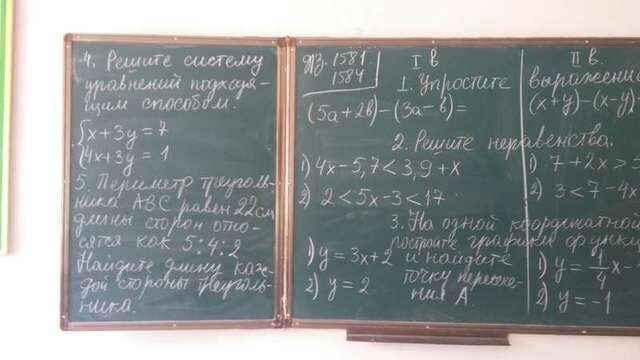 4. Решите систему
уравнений подходя-
щим способом.
{x+3y=7
{4x+3y=1
5. Периметр треуголь-
ника ABC равен 22см
длины сторон отно-
сятся как 5:4:2
Найдите длину каж-
дой стороны треуголь-
ника.
Д/З. 1581.
1584
I в
1. Упростите
(5a+2b)-(3a-b)=
2. Решите неравенства:
1) 4x-5,7<3,9+x
2) 2<5x-3<17
3. На одной координатной
постройте графики функц
1) y=3x+2 и найдите
2) y=2 точку пересече-
ния A.
II в.
выражение
(x+y)-(x-y)
1) 7+2x>
2) 3<7-4x
1) y=1/4x-
2) y=-1